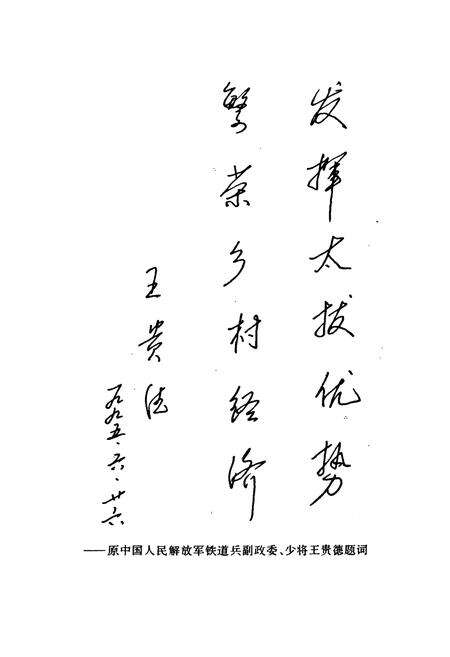 发挥太拔优势
繁荣乡村经济
王贵德
一九九五·六·廿六
——原中国人民解放军铁道兵副政委、少将王贵德题词